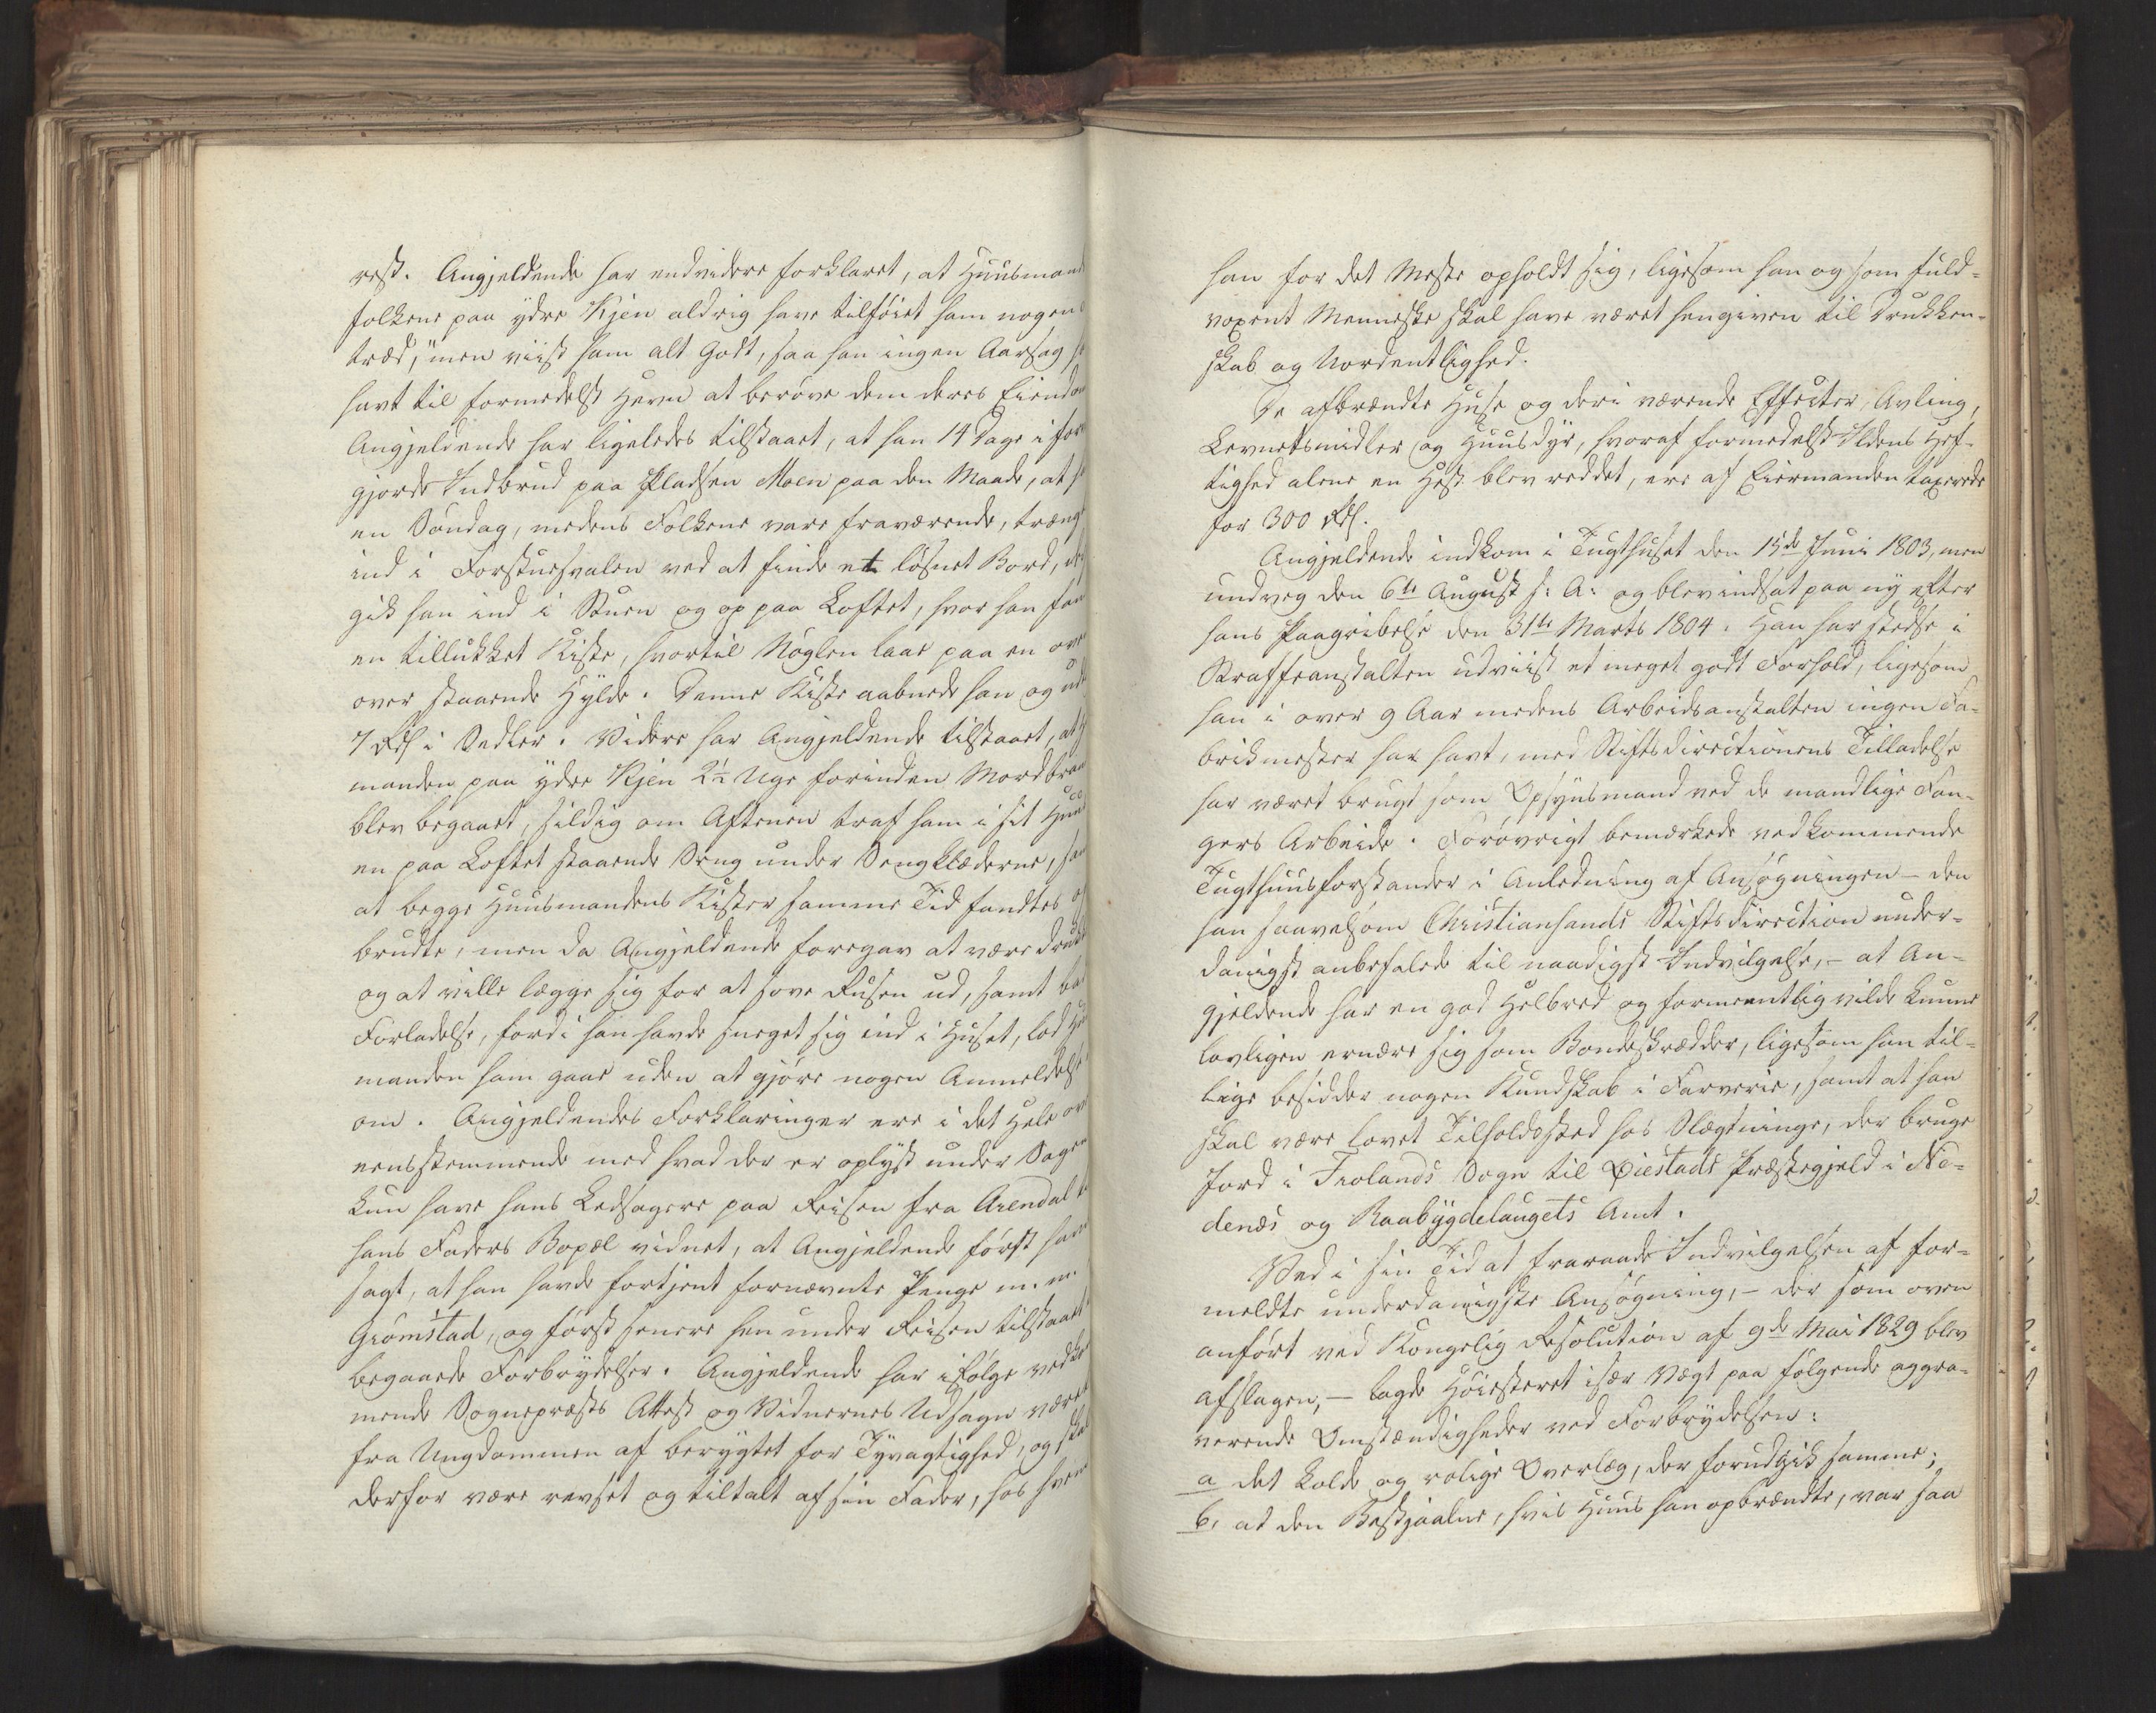 rest. Angjeldende har endvidere forklaret, at Huusmand
folkene paa ydre Kjen aldrig have tilføiet ham nogen
træd, men viist ham alt Godt, saa han ingen Aarsag
havt til formedelst Hevn at berøve dem deres Eiendom
Angjeldende har ligeledes tilstaaet, at han 14 Dage i
gjorde Indbrud paa Pladsen Moen paa den Maade, at
en Søndag, medens Folkene vare fraværende, trængte
ind i Forstuesvalen ved at finde et løsnet Bord,
gik han ind i Stuen og op paa Loftet, hvor han
en tillukket Kiste, hvortil Nøglen laae paa en
over staaende Hylde. Denne Kiste aabnede han og
7 Rd i Sedler. Videre har Angjeldende tilstaaet, at
manden paa ydre Kjen 2½ Uge forinden Mordbran
blev begaaet, sildig om Aftenen traf ham i sit Huus
en paa Loftet staaende Seng under Sengklæderne,
at begge Huusmandens Kister samme Tid fandtes
brudte, men da Angjeldende foregav at være druk
og at ville lægge sig for at sove Rusen ud, samt bad
Forladelse, fordi han havde sneget sig ind i Huset, lod
manden ham gaae uden at gjøre nogen Anmeldelse
om. Angjeldendes Forklaringer ere i det Hele
eensstemmende med hvad der er oplyst under Sagen
kun have hans Ledsagere paa Reisen fra Arendal
hans Faders Bopæl vidnet, at Angjeldende først
sagt, at han havde fortjent fornævnte Penge m. m.
Grømstad, og først senere hen under Reisen tilstaaet
begaaede Forbrydelser. Angjeldende har ifølge vedkom
mende Sognepræsts Attest og Vidnernes Udsagn været
fra Ungdommen af berygtet for Tyvagtighed, og skal
derfor være revset og tiltalt af sin Fader, hos hvem
han for det Meste opholdt sig, ligesom han og som fuld-
voxent Menneske skal have været hengiven til Drukken-
skab og Uordentlighed.
De afbrændte Huse og deri værende Effecter, Avling,
Levnetsmidler og Huusdyr, hvoraf formedelst Ildens Hef-
tighed alene en Hest blev reddet, ere af Eiermanden taxerede
for 300 Rd.
Angjeldende indkom i Tugthuset den 15de Juni 1803, men
undveg den 6te August s: A: og blev indsat paa ny efter
hans Paagribelse den 31te Marts 1804. Han har stedse i
Straffeanstalten udviist et meget godt Forhold, ligesom
han i over 9 Aar medens Arbeidsanstalten ingen Fa-
brikmester har havt, med Stiftsdirectionens Tilladelse
har været brugt som Opsynsmand ved de mandlige Fan-
gers Arbeide. Forøvrigt bemærkede vedkommende
Tugthuusforstander i Anledning af Ansøgningen – den
han saavelsom Christiansands Stiftsdirection under-
danigst anbefalede til naadigst Indvilgelse, – at An-
gjeldende har en god Helbred og formeentlig vilde kunne
lovligen ernære sig som Bondeskrædder, ligesom han til-
lige besidder nogen Kundskab i Farverie, samt at han
skal være lovet Tilholdssted hos Slægtninge, der bruge
Jord i Frolands Sogn til Øiestads Præstegjeld i Ne-
denæs og Raabygdelaugets Amt.
Ved i sin Tid at fraraade Indvilgelsen af for-
meldte underdanigste Ansøgning, – der som oven
anført ved Kongelig Resolution af 9de Mai 1829 blev
afslagen, – lagde Høiesteret især Vægt paa følgende aggra-
verende Omstændigheder ved Forbrydelsen:
a det kolde og rolige Overlæg, der forudgik samme;
b, at den Bestjaalne, hvis Huus han opbrændte, var saa